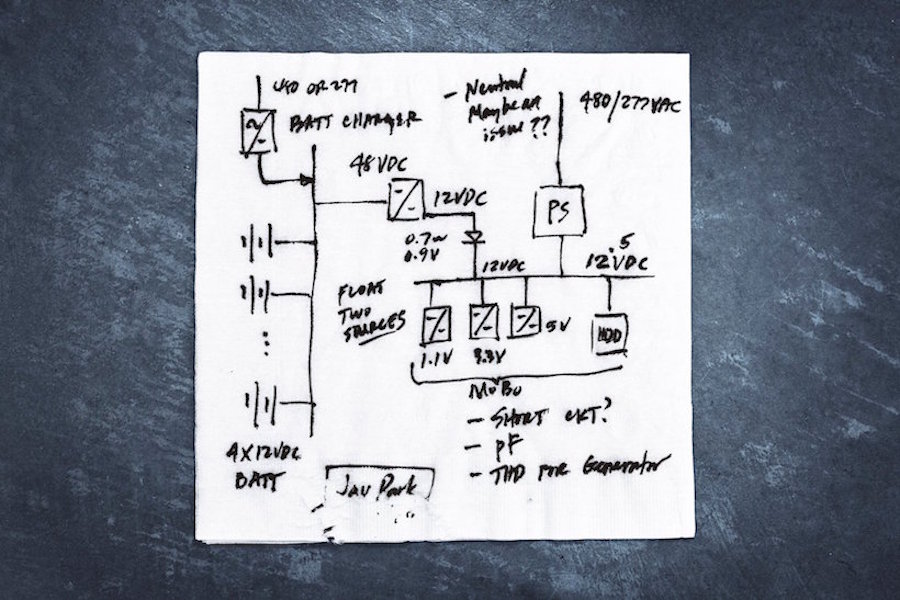 480 OR 277
BATT CHARGER
- Neutral
Maybe an
issue ??
480/277VAC
48 VDC
12VDC
PS
0.7~
0.9V
12VDC
12.5VDC
FLOAT
TWO
SOURCES
1.1V
3.3V
5V
HDD
MoBo
- SHORT CKT?
- PF
- THD FOR Generator
4X12VDC
BATT
Jay Park